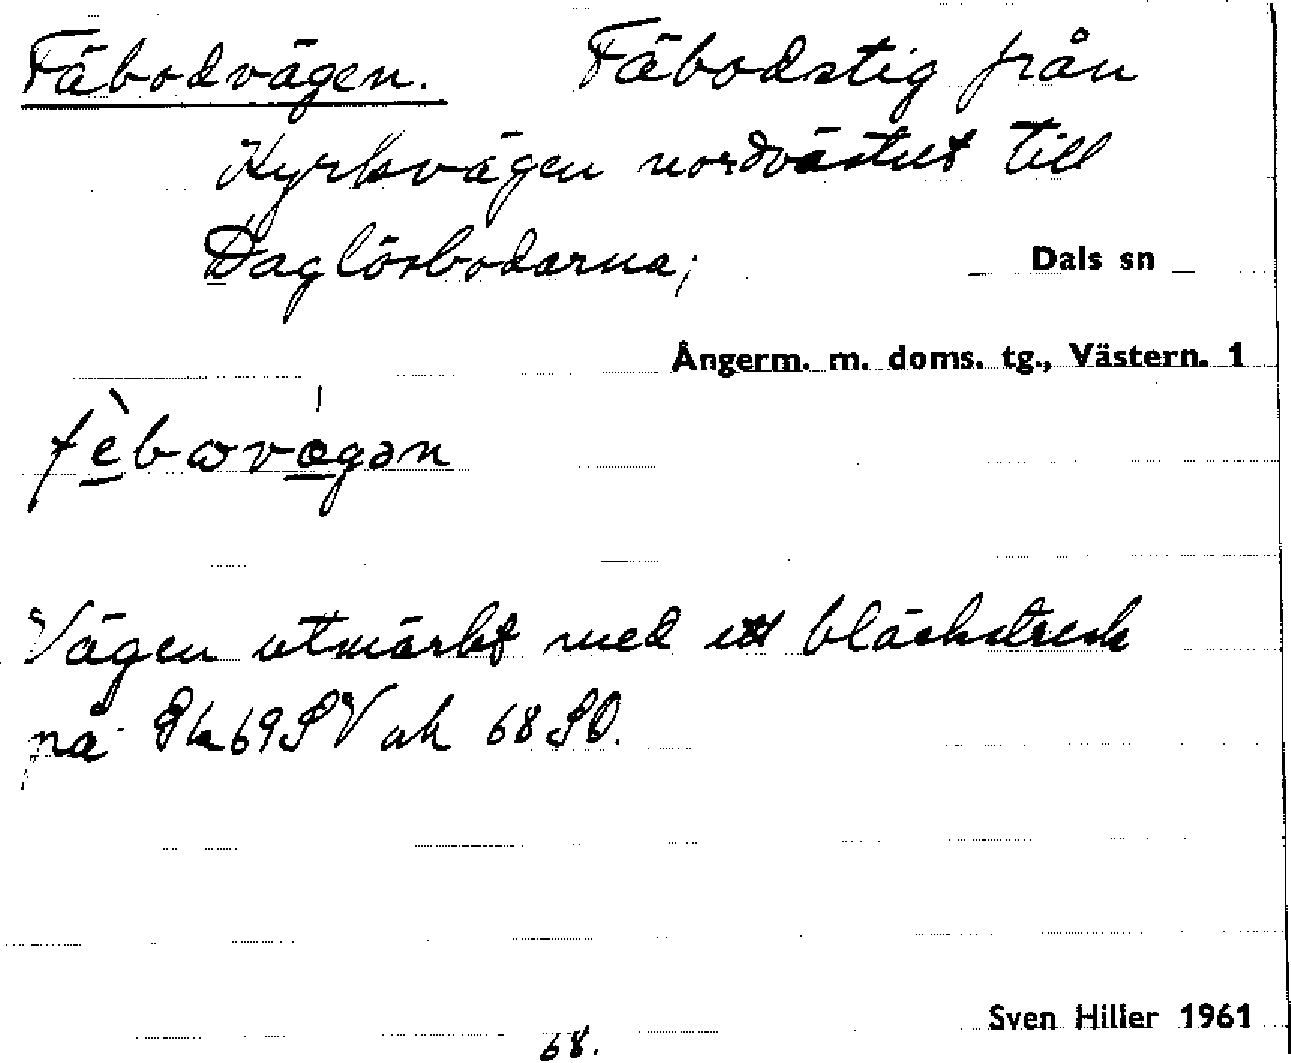 Fäbodvägen. Fäbodstig från
Kyrkvägen nordvästut till
Daglösbodarna;
Dals sn
Ångerm. m. doms. tg., Västern. 1
fèbωvǽgən
Vägen utmärkt med ett bläckstreck
på Bk 69 SV ok 68 SO.
Sven Hiller 1961
68.